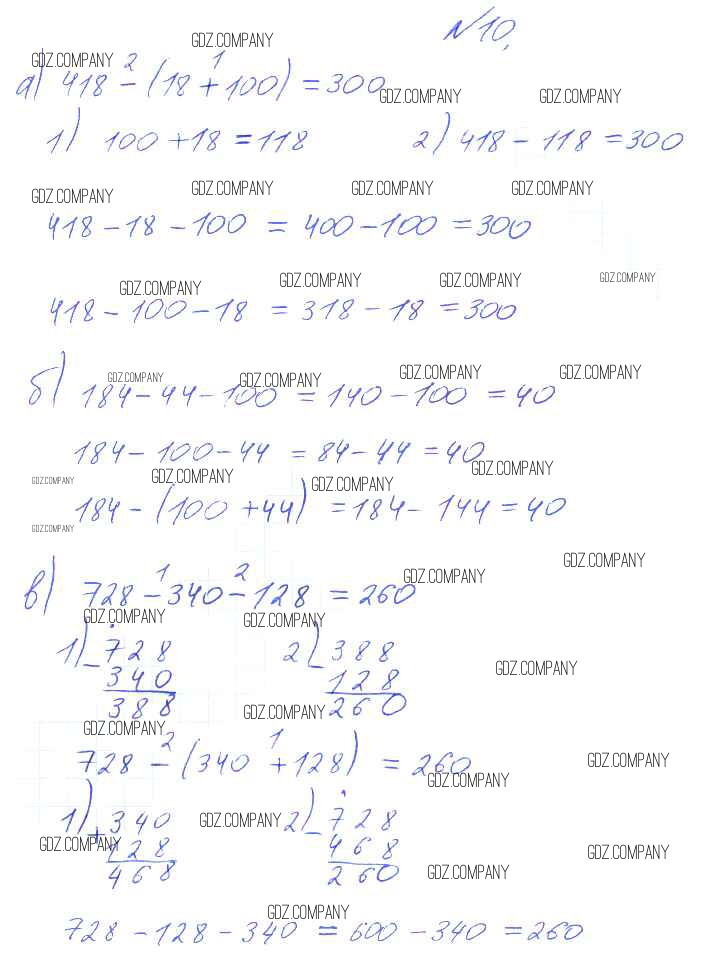 №10.
GDZ.COMPANY
GDZ.COMPANY 2 1
а) 418 - (18 + 100) = 300
GDZ.COMPANY GDZ.COMPANY
1) 100 + 18 = 118 2) 418 - 118 = 300
GDZ.COMPANY GDZ.COMPANY GDZ.COMPANY GDZ.COMPANY
418 - 18 - 100 = 400 - 100 = 300
GDZ.COMPANY GDZ.COMPANY GDZ.COMPANY GDZ.COMPANY
418 - 100 - 18 = 318 - 18 = 300
GDZ.COMPANY GDZ.COMPANY GDZ.COMPANY GDZ.COMPANY
б) 184 - 44 - 100 = 140 - 100 = 40
184 - 100 - 44 = 84 - 44 = 40
GDZ.COMPANY GDZ.COMPANY GDZ.COMPANY GDZ.COMPANY
184 - (100 + 44) = 184 - 144 = 40
GDZ.COMPANY
GDZ.COMPANY GDZ.COMPANY
1 2
в) 728 - 340 - 128 = 260
GDZ.COMPANY GDZ.COMPANY
1) - 728 2) - 388
340 128 GDZ.COMPANY
388 260
GDZ.COMPANY
GDZ.COMPANY
2 1
728 - (340 + 128) = 260
GDZ.COMPANY GDZ.COMPANY
1) + 340 GDZ.COMPANY 2) - 728
GDZ.COMPANY 128 468 GDZ.COMPANY
468 260 GDZ.COMPANY
GDZ.COMPANY
728 - 128 - 340 = 600 - 340 = 260